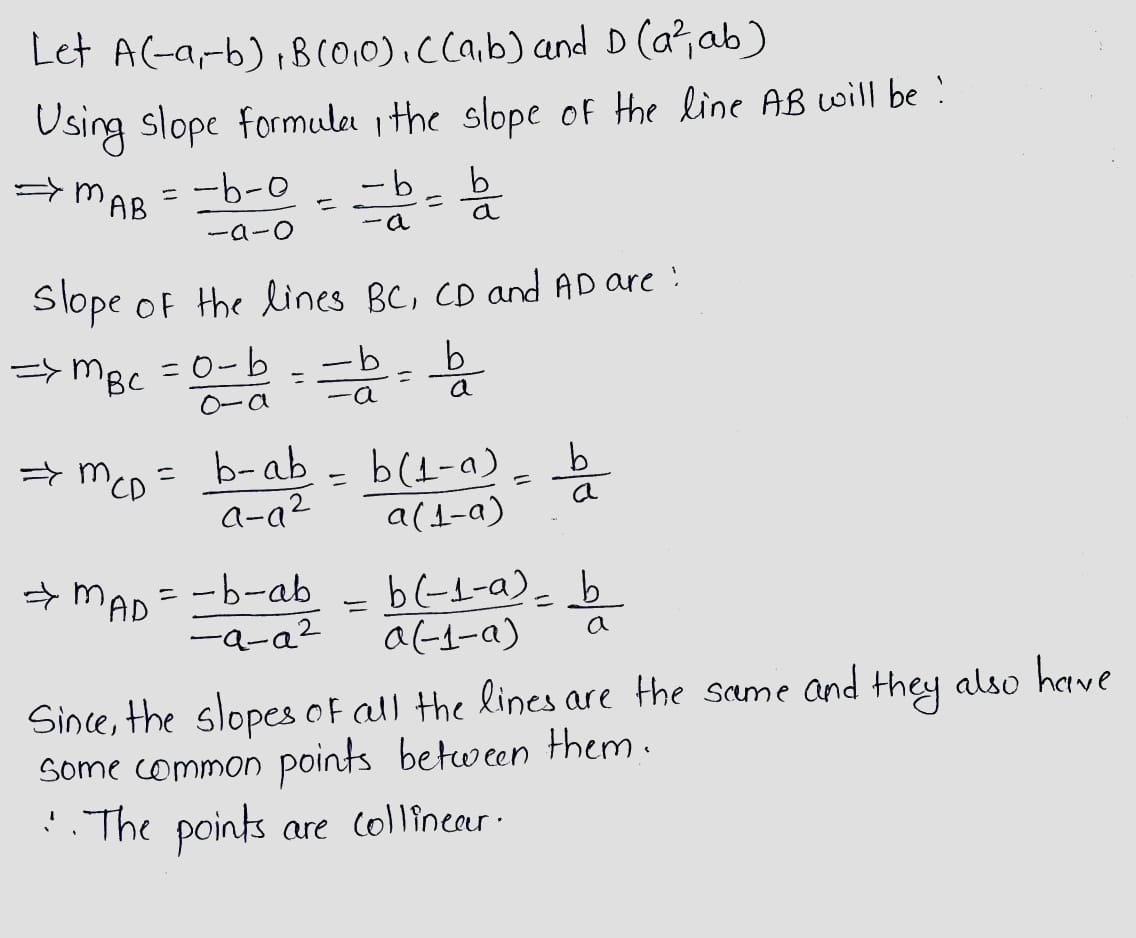 Let A(-a,-b), B(0,0), C(a,b) and D(a²,ab)
Using slope formula, the slope of the line AB will be :
⇒ m_AB = (-b-0)/(-a-0) = (-b)/(-a) = b/a
Slope of the lines BC, CD and AD are :
⇒ m_BC = (0-b)/(0-a) = (-b)/(-a) = b/a
⇒ m_CD = (b-ab)/(a-a²) = b(1-a)/a(1-a) = b/a
⇒ m_AD = (-b-ab)/(-a-a²) = b(-1-a)/a(-1-a) = b/a
Since, the slopes of all the lines are the same and they also have
some common points between them.
∴ The points are collinear.